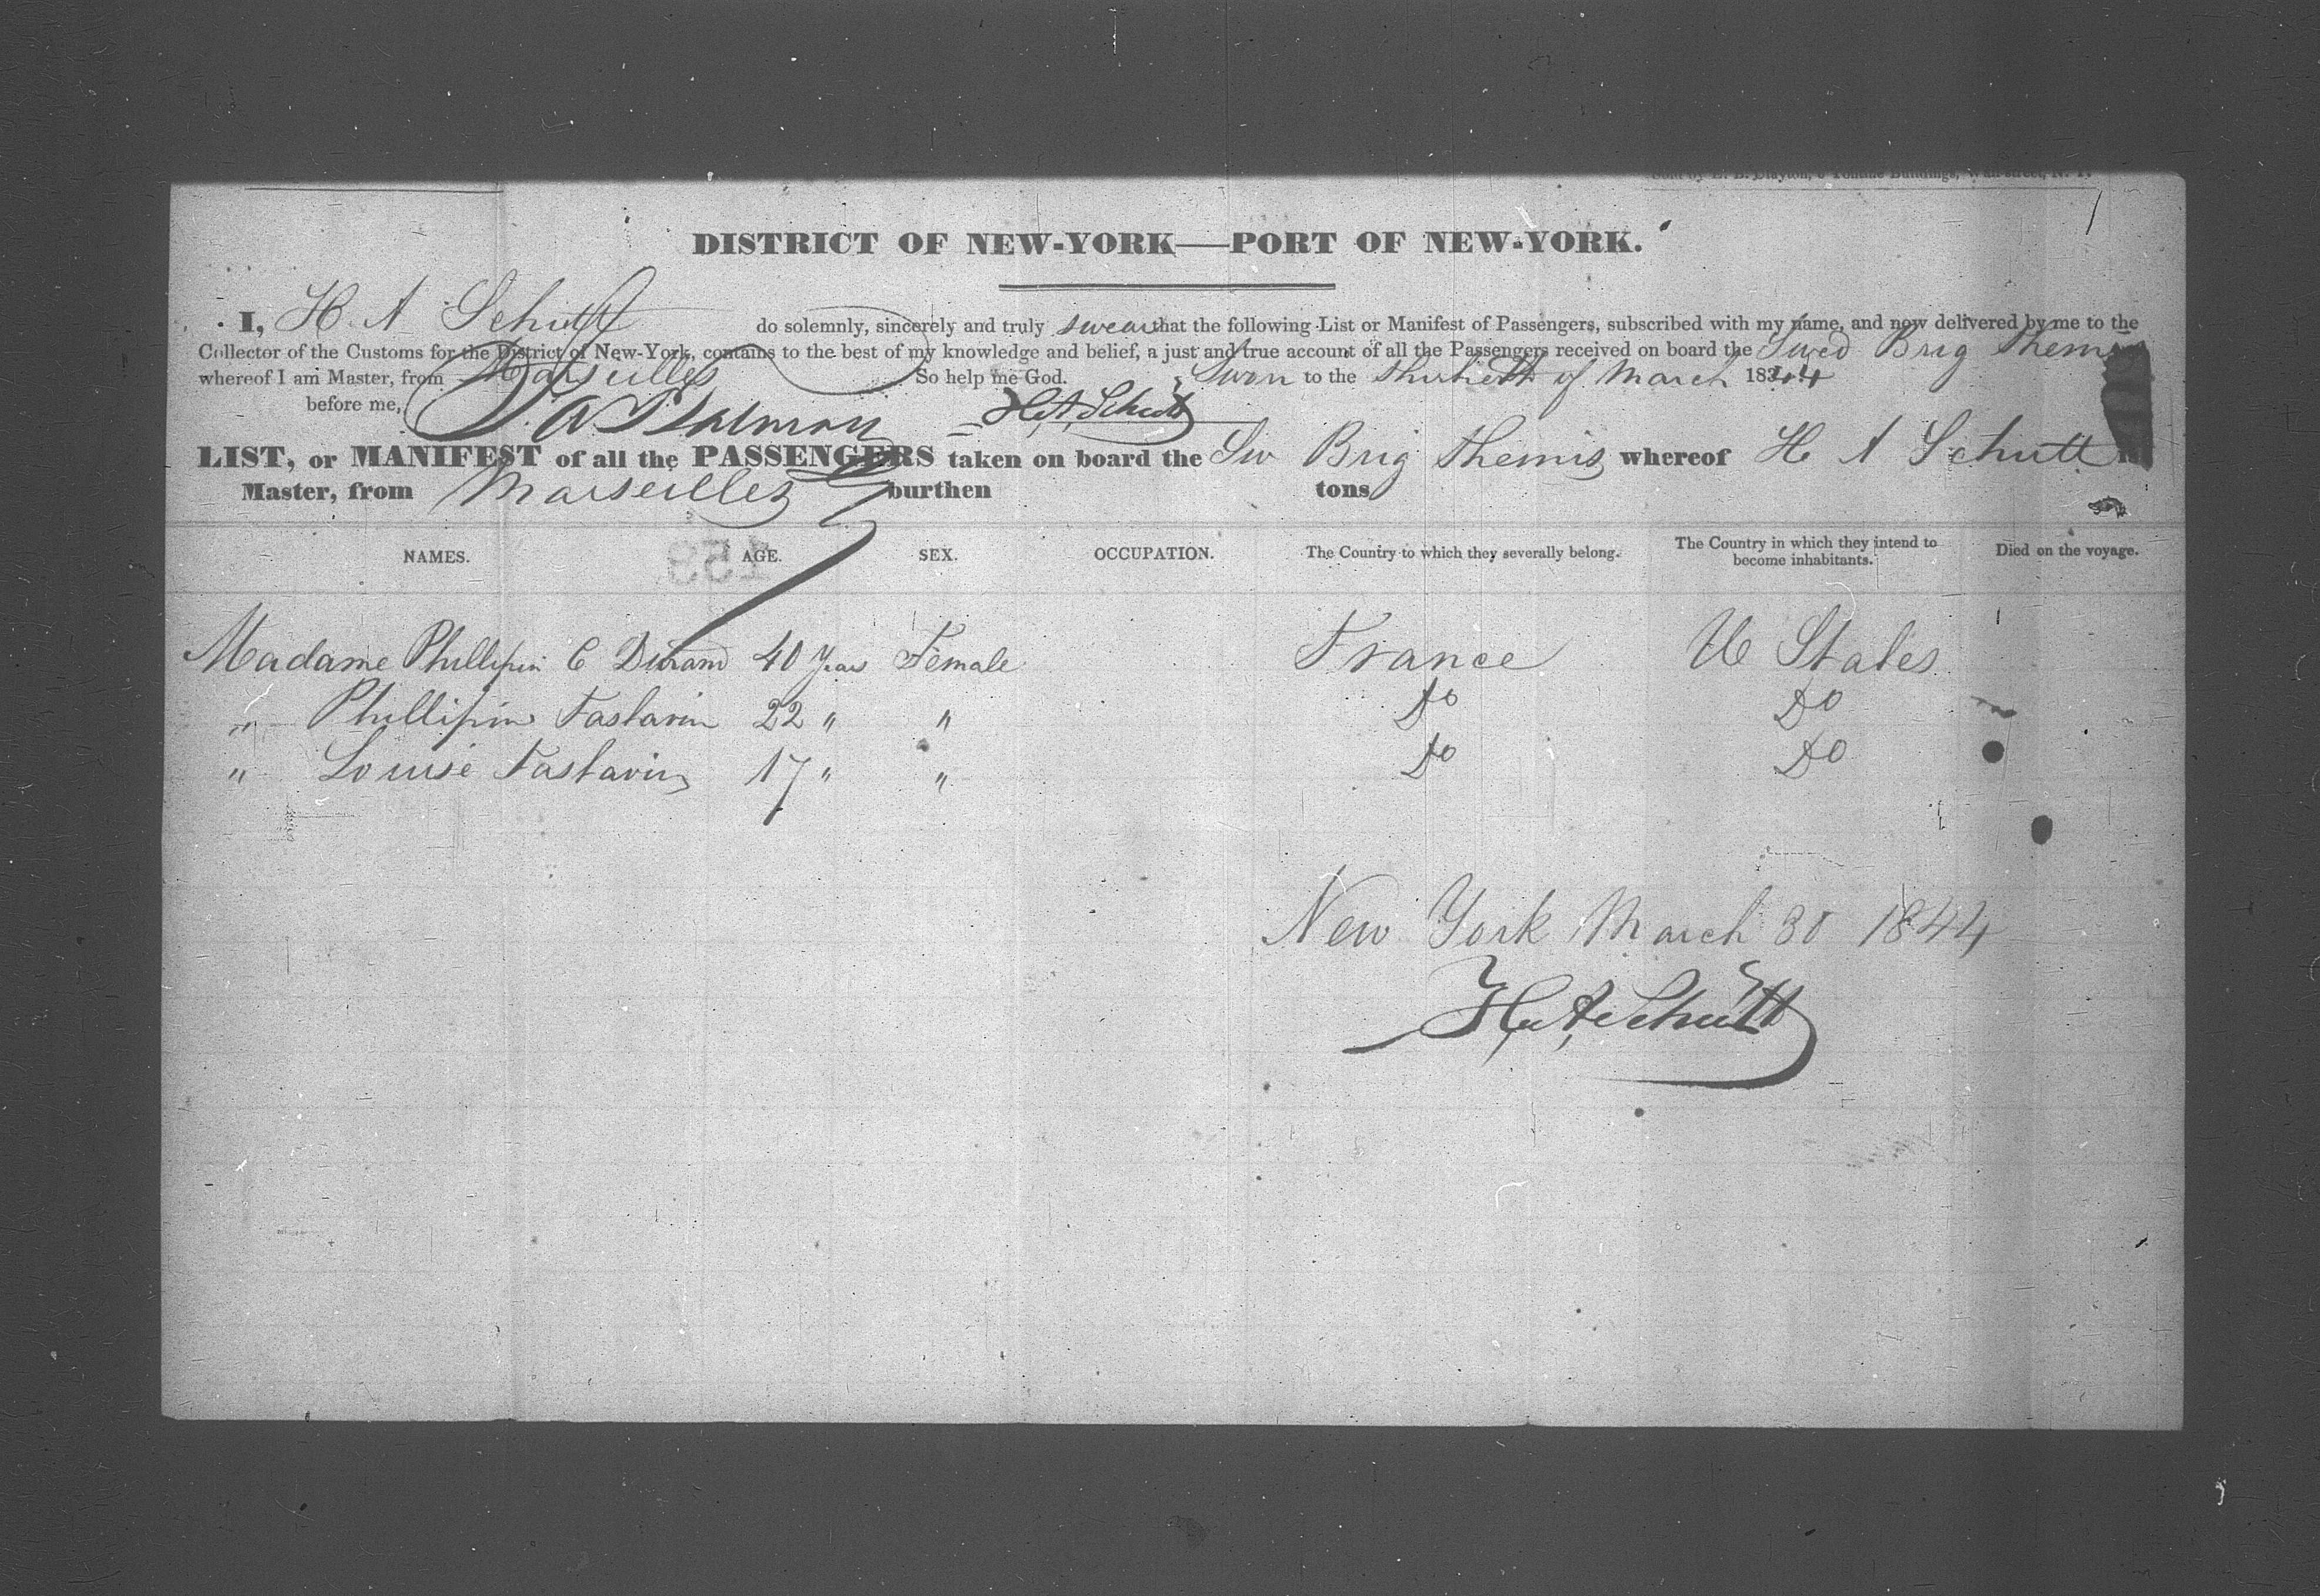 Sold by E. B. Clayton, 9 Tontine Buildings, Wall-street, N. Y.
DISTRICT OF NEW-YORK—PORT OF NEW-YORK.
I, H. A Schutt do solemnly, sincerely and truly swear that the following List or Manifest of Passengers, subscribed with my name, and now delivered by me to the
Collector of the Customs for the District of New-York, contains to the best of my knowledge and belief, a just and true account of all the Passengers received on board the Swed Brig Themis
whereof I am Master, from Marseilles So help me God. Sworn to the thirtieth of March 1844
before me, H. A. Schutt
LIST, or MANIFEST of all the PASSENGERS taken on board the Sw Brig Themis whereof H A Schutt is
Master, from Marseilles burthen tons
NAMES. AGE. SEX. OCCUPATION. The Country to which they severally belong. The Country in which they intend to become inhabitants. Died on the voyage.
153
Madame Phillipin C Durand 40 Years Female France U States
" Phillipin Tastavin 22 " " Do Do
" Louise Tastavin 17 " " Do Do
New York March 30 1844
H. A. Schutt